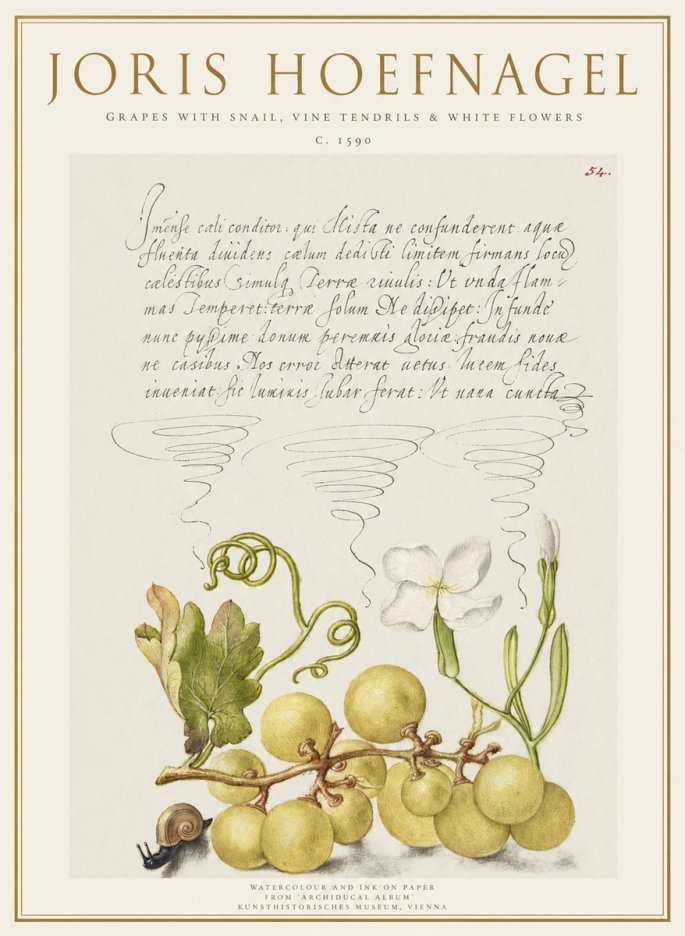 JORIS HOEFNAGEL
GRAPES WITH SNAIL, VINE TENDRILS & WHITE FLOWERS
C. 1590
54.
Jmēnse cæli conditor: qui Mista ne confunderent aquæ
fluenta diuidens cælum dedisti limitem firmans locū
cælestibus Simulq Terræ riuulis: Vt vnda flam-
mas Temperet: terræ solum Ne dissipet: Infunde
nunc pyssime donum perennis gloriæ: fraudis nouæ
ne casibus Nos error Atterat uetus: lucem fides
inueniat: sic luminis Jubar ferat: Vt uana cuncta
WATERCOLOUR AND INK ON PAPER
FROM 'ARCHIDUCAL ALBUM'
KUNSTHISTORISCHES MUSEUM, VIENNA